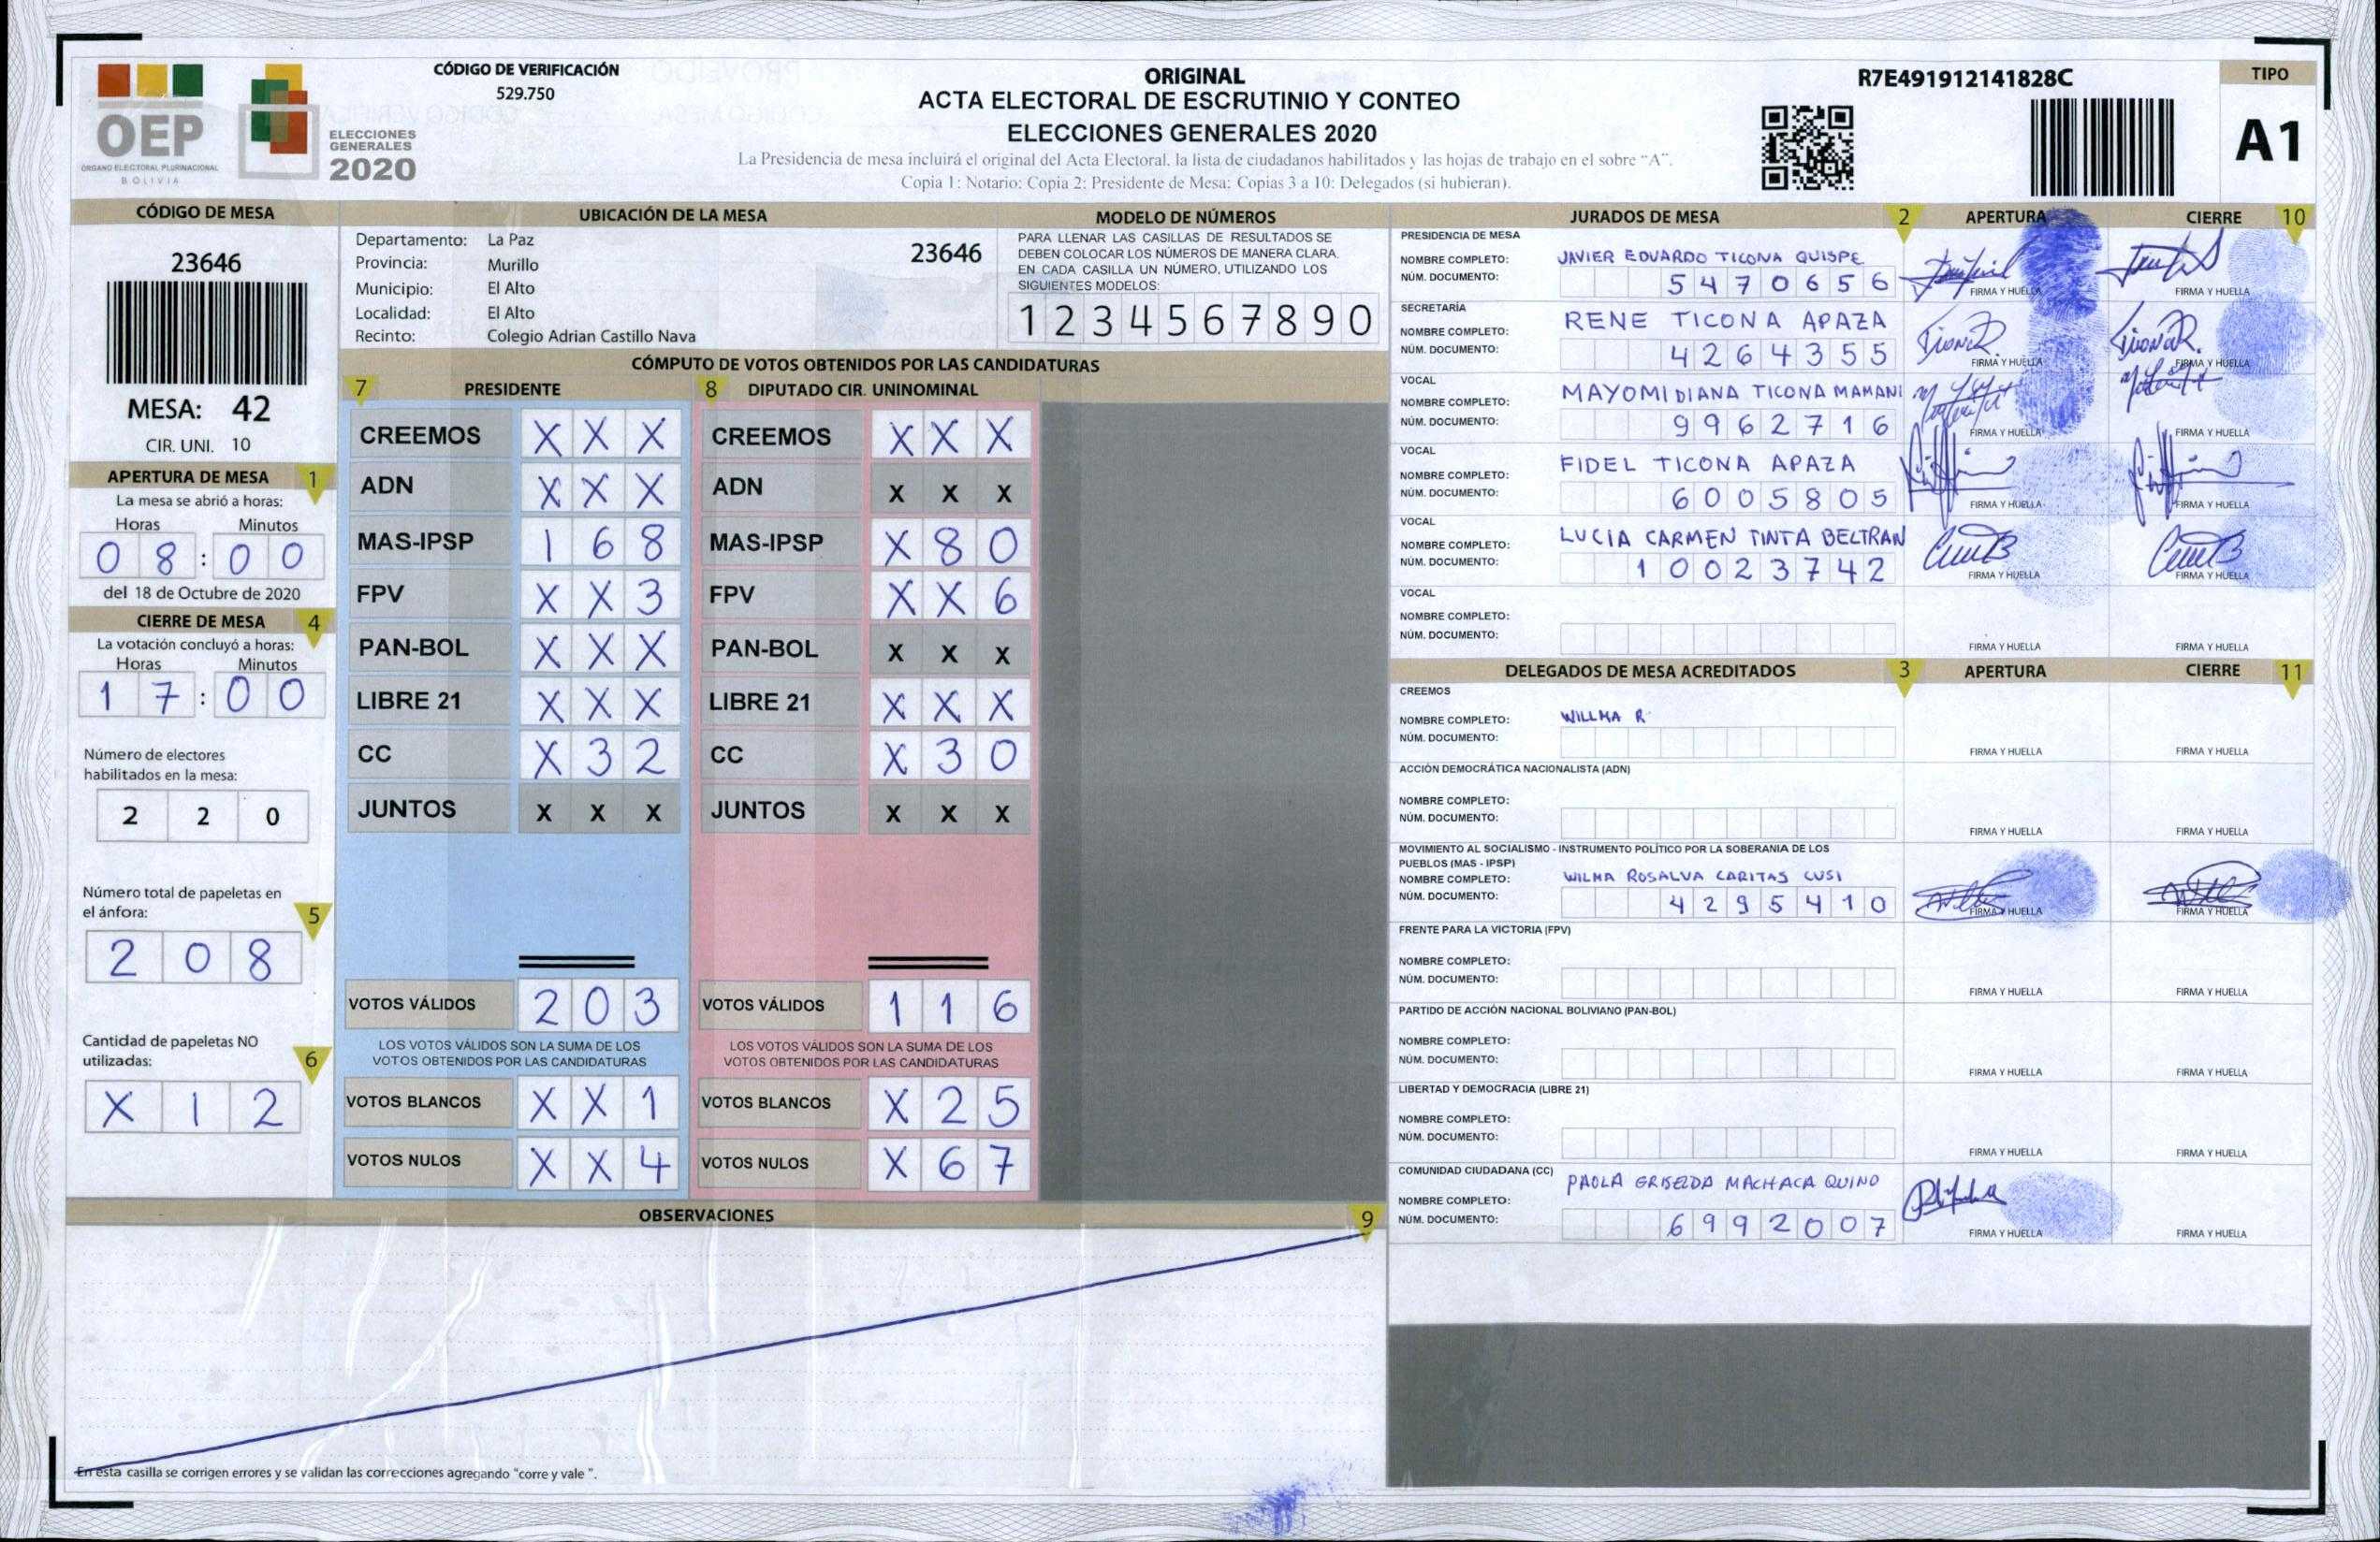 OEP
ÓRGANO ELECTORAL PLURINACIONAL
BOLIVIA
ELECCIONES
GENERALES
2020
CÓDIGO DE VERIFICACIÓN
529.750
ORIGINAL
ACTA ELECTORAL DE ESCRUTINIO Y CONTEO
ELECCIONES GENERALES 2020
La Presidencia de mesa incluirá el original del Acta Electoral, la lista de ciudadanos habilitados y las hojas de trabajo en el sobre “A”.
Copia 1: Notario; Copia 2: Presidente de Mesa; Copias 3 a 10: Delegados (si hubieran).
R7E491912141828C
TIPO
A1
CÓDIGO DE MESA
23646
MESA: 42
CIR. UNI. 10
APERTURA DE MESA 1
La mesa se abrió a horas:
Horas Minutos
0 8 : 0 0
del 18 de Octubre de 2020
CIERRE DE MESA 4
La votación concluyó a horas:
Horas Minutos
1 7 : 0 0
Número de electores
habilitados en la mesa:
2 2 0
Número total de papeletas en
el ánfora: 5
2 0 8
Cantidad de papeletas NO
utilizadas: 6
X 1 2
UBICACIÓN DE LA MESA
Departamento: La Paz 23646
Provincia: Murillo
Municipio: El Alto
Localidad: El Alto
Recinto: Colegio Adrian Castillo Nava
MODELO DE NÚMEROS
PARA LLENAR LAS CASILLAS DE RESULTADOS SE
DEBEN COLOCAR LOS NÚMEROS DE MANERA CLARA.
EN CADA CASILLA UN NÚMERO, UTILIZANDO LOS
SIGUIENTES MODELOS:
1 2 3 4 5 6 7 8 9 0
CÓMPUTO DE VOTOS OBTENIDOS POR LAS CANDIDATURAS
7 PRESIDENTE 8 DIPUTADO CIR. UNINOMINAL
CREEMOS X X X CREEMOS X X X
ADN X X X ADN X X X
MAS-IPSP 1 6 8 MAS-IPSP X 8 0
FPV X X 3 FPV X X 6
PAN-BOL X X X PAN-BOL X X X
LIBRE 21 X X X LIBRE 21 X X X
CC X 3 2 CC X 3 0
JUNTOS X X X JUNTOS X X X
VOTOS VÁLIDOS 2 0 3 VOTOS VÁLIDOS 1 1 6
LOS VOTOS VÁLIDOS SON LA SUMA DE LOS LOS VOTOS VÁLIDOS SON LA SUMA DE LOS
VOTOS OBTENIDOS POR LAS CANDIDATURAS VOTOS OBTENIDOS POR LAS CANDIDATURAS
VOTOS BLANCOS X X 1 VOTOS BLANCOS X 2 5
VOTOS NULOS X X 4 VOTOS NULOS X 6 7
OBSERVACIONES 9
En esta casilla se corrigen errores y se validan las correcciones agregando "corre y vale ".
JURADOS DE MESA 2 APERTURA CIERRE 10
PRESIDENCIA DE MESA
NOMBRE COMPLETO: JAVIER EDUARDO TICONA QUISPE
NÚM. DOCUMENTO: 5 4 7 0 6 5 6
FIRMA Y HUELLA FIRMA Y HUELLA
SECRETARÍA
NOMBRE COMPLETO: RENE TICONA APAZA
NÚM. DOCUMENTO: 4 2 6 4 3 5 5
FIRMA Y HUELLA FIRMA Y HUELLA
VOCAL
NOMBRE COMPLETO: MAYOMI DIANA TICONA MAMANI
NÚM. DOCUMENTO: 9 9 6 2 7 1 6
FIRMA Y HUELLA FIRMA Y HUELLA
VOCAL
NOMBRE COMPLETO: FIDEL TICONA APAZA
NÚM. DOCUMENTO: 6 0 0 5 8 0 5
FIRMA Y HUELLA FIRMA Y HUELLA
VOCAL
NOMBRE COMPLETO: LUCIA CARMEN TINTA BELTRAN
NÚM. DOCUMENTO: 1 0 0 2 3 7 4 2
FIRMA Y HUELLA FIRMA Y HUELLA
VOCAL
NOMBRE COMPLETO:
NÚM. DOCUMENTO:
FIRMA Y HUELLA FIRMA Y HUELLA
DELEGADOS DE MESA ACREDITADOS 3 APERTURA CIERRE 11
CREEMOS
NOMBRE COMPLETO: WILLMA R
NÚM. DOCUMENTO:
FIRMA Y HUELLA FIRMA Y HUELLA
ACCIÓN DEMOCRÁTICA NACIONALISTA (ADN)
NOMBRE COMPLETO:
NÚM. DOCUMENTO:
FIRMA Y HUELLA FIRMA Y HUELLA
MOVIMIENTO AL SOCIALISMO - INSTRUMENTO POLÍTICO POR LA SOBERANIA DE LOS
PUEBLOS (MAS - IPSP)
NOMBRE COMPLETO: WILMA ROSALVA CARITAS CUSI
NÚM. DOCUMENTO: 4 2 9 5 4 1 0
FIRMA Y HUELLA FIRMA Y HUELLA
FRENTE PARA LA VICTORIA (FPV)
NOMBRE COMPLETO:
NÚM. DOCUMENTO:
FIRMA Y HUELLA FIRMA Y HUELLA
PARTIDO DE ACCIÓN NACIONAL BOLIVIANO (PAN-BOL)
NOMBRE COMPLETO:
NÚM. DOCUMENTO:
FIRMA Y HUELLA FIRMA Y HUELLA
LIBERTAD Y DEMOCRACIA (LIBRE 21)
NOMBRE COMPLETO:
NÚM. DOCUMENTO:
FIRMA Y HUELLA FIRMA Y HUELLA
COMUNIDAD CIUDADANA (CC)
NOMBRE COMPLETO: PAOLA GRISELDA MACHACA QUINO
NÚM. DOCUMENTO: 6 9 9 2 0 0 7
FIRMA Y HUELLA FIRMA Y HUELLA